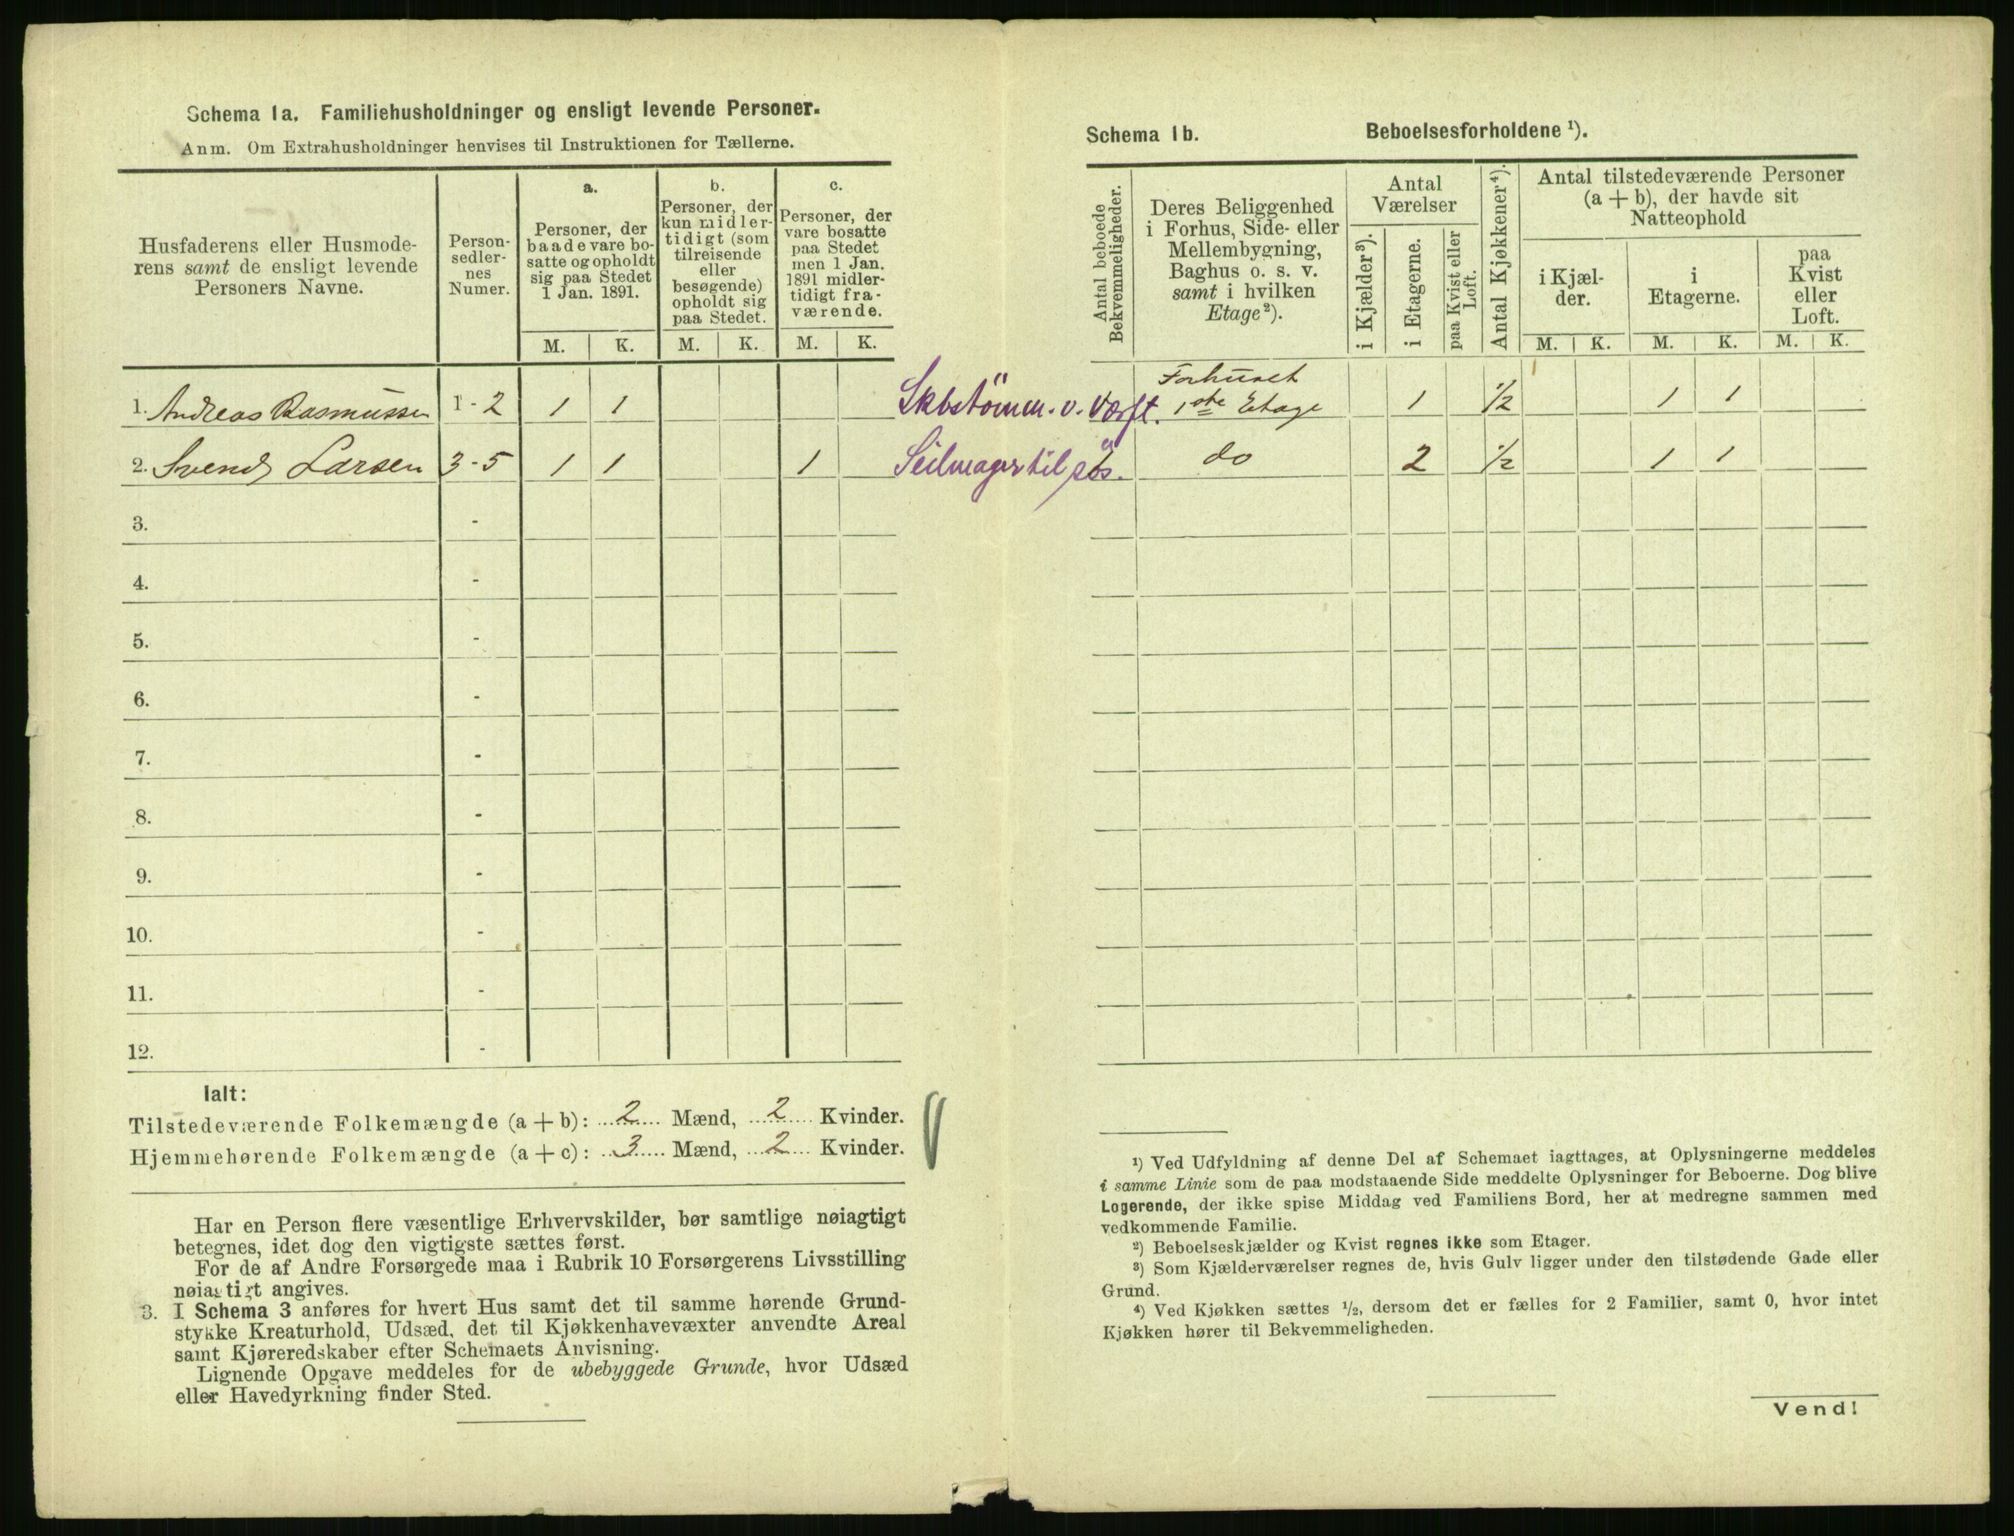 Schema 1a. Familiehusholdninger og ensligt levende Personer.
Anm. Om Extrahusholdninger henvises til Instruktionen for Tællerne.
Husfaderens eller Husmode-
rens samt de ensligt levende
Personers Navne.
Person-
sedler-
nes
Numer.
a.
Personer, der
baade vare bo-
satte og opholdt
sig paa Stedet
1 Jan. 1891.
b.
Personer, der
kun midler-
tidigt (som
tilreisende
eller
besøgende)
opholdt sig
paa Stedet.
c.
Personer, der
vare bosatte
paa Stedet
men 1 Jan.
1891 midler-
tidigt fra-
værende.
M. K. M. K. M. K.
1. Andreas Rasmussen 1-2 1 1
2. Svend Larsen 3-5 1 1 1
3. -
4. -
5. -
6. -
7. -
8. -
9. -
10. -
11. -
12. -
Ialt:
Tilstedeværende Folkemængde (a + b): 2 Mænd, 2 Kvinder.
Hjemmehørende Folkemængde (a + c): 3 Mænd, 2 Kvinder.
Har en Person flere væsentlige Erhvervskilder, bør samtlige nøiagtigt
betegnes, idet dog den vigtigste sættes først.
For de af Andre Forsørgede maa i Rubrik 10 Forsørgerens Livsstilling
nøiagtigt angives.
3. I Schema 3 anføres for hvert Hus samt det til samme hørende Grund-
stykke Kreaturhold, Udsæd, det til Kjøkkenhavevæxter anvendte Areal
samt Kjøreredskaber efter Schemaets Anvisning.
Lignende Opgave meddeles for de ubebyggede Grunde, hvor Udsæd
eller Havedyrkning finder Sted.
Schema 1b. Beboelsesforholdene ¹).
Antal beboede
Bekvemmeligheder.
Deres Beliggenhed
i Forhus, Side- eller
Mellembygning,
Baghus o. s. v.
samt i hvilken
Etage²).
Antal
Værelser
i Kjælder³).
i Etagerne.
paa Kvist eller
Loft.
Antal Kjøkkener⁴).
Antal tilstedeværende Personer
(a + b), der havde sit
Natteophold
i Kjæl-
der.
i
Etagerne.
paa
Kvist
eller
Loft.
M. K. M. K. M. K.
Skbstömm. v. Værft.
Forhuset
1ste Etage 1 1/2 1 1
Seilmager til søs. do 2 1/2 1 1
¹) Ved Udfyldning af denne Del af Schemaet iagttages, at Oplysningerne meddeles
i samme Linie som de paa modstaaende Side meddelte Oplysninger for Beboerne. Dog blive
Logerende, der ikke spise Middag ved Familiens Bord, her at medregne sammen med
vedkommende Familie.
²) Beboelseskjælder og Kvist regnes ikke som Etager.
³) Som Kjælderværelser regnes de, hvis Gulv ligger under den tilstødende Gade eller
Grund.
⁴) Ved Kjøkken sættes ½, dersom det er fælles for 2 Familier, samt 0, hvor intet
Kjøkken hører til Bekvemmeligheden.
Vend!